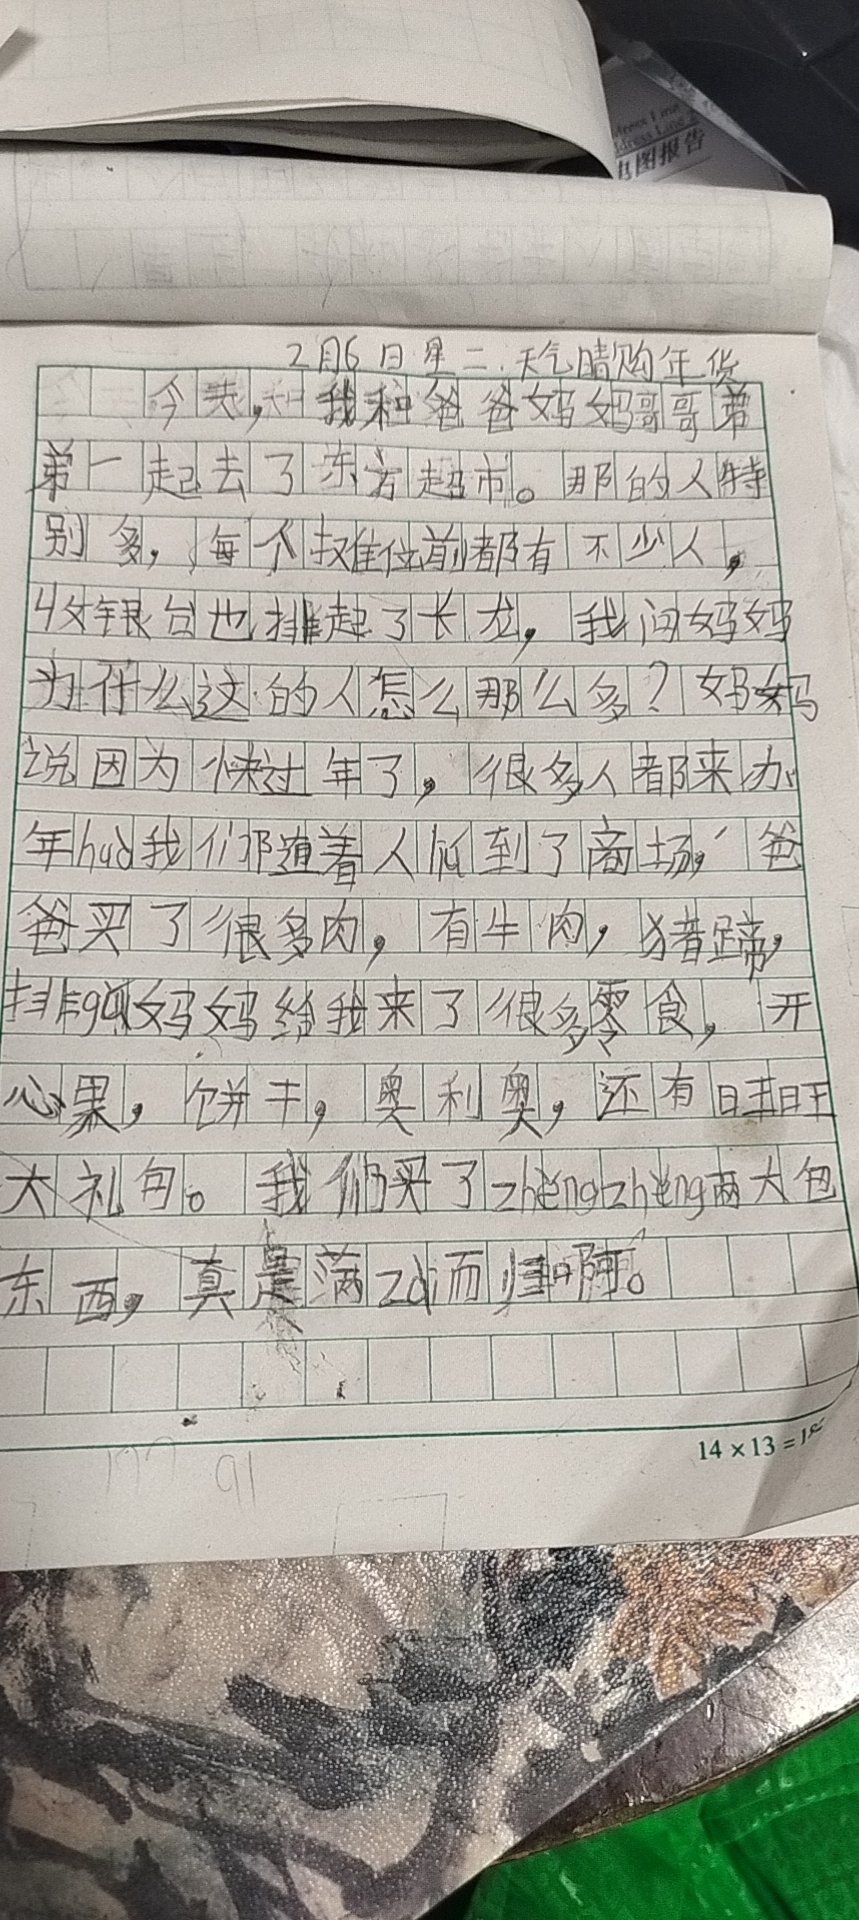 Address Line 2
电图报告
2月6日星二.天气晴购年货
今天,我和爸爸妈妈哥哥弟
弟一起去了东方超市。那的人特
别多,每个摊位前都有不少人,
收银台也排起了长龙,我问妈妈
为什么这的人怎么那么多?妈妈
说因为快过年了,很多人都来办
年huò我们邓道着人
到了商场,爸
爸买了很多肉,有牛肉,猪蹄,
排gǔ妈妈给我来了很多零食,开
心果,饼干,奥利奥,还有旺旺
大礼包。我们买了zhěngzhěng两大包
东西,真是满zài而归啊。
14×13=182